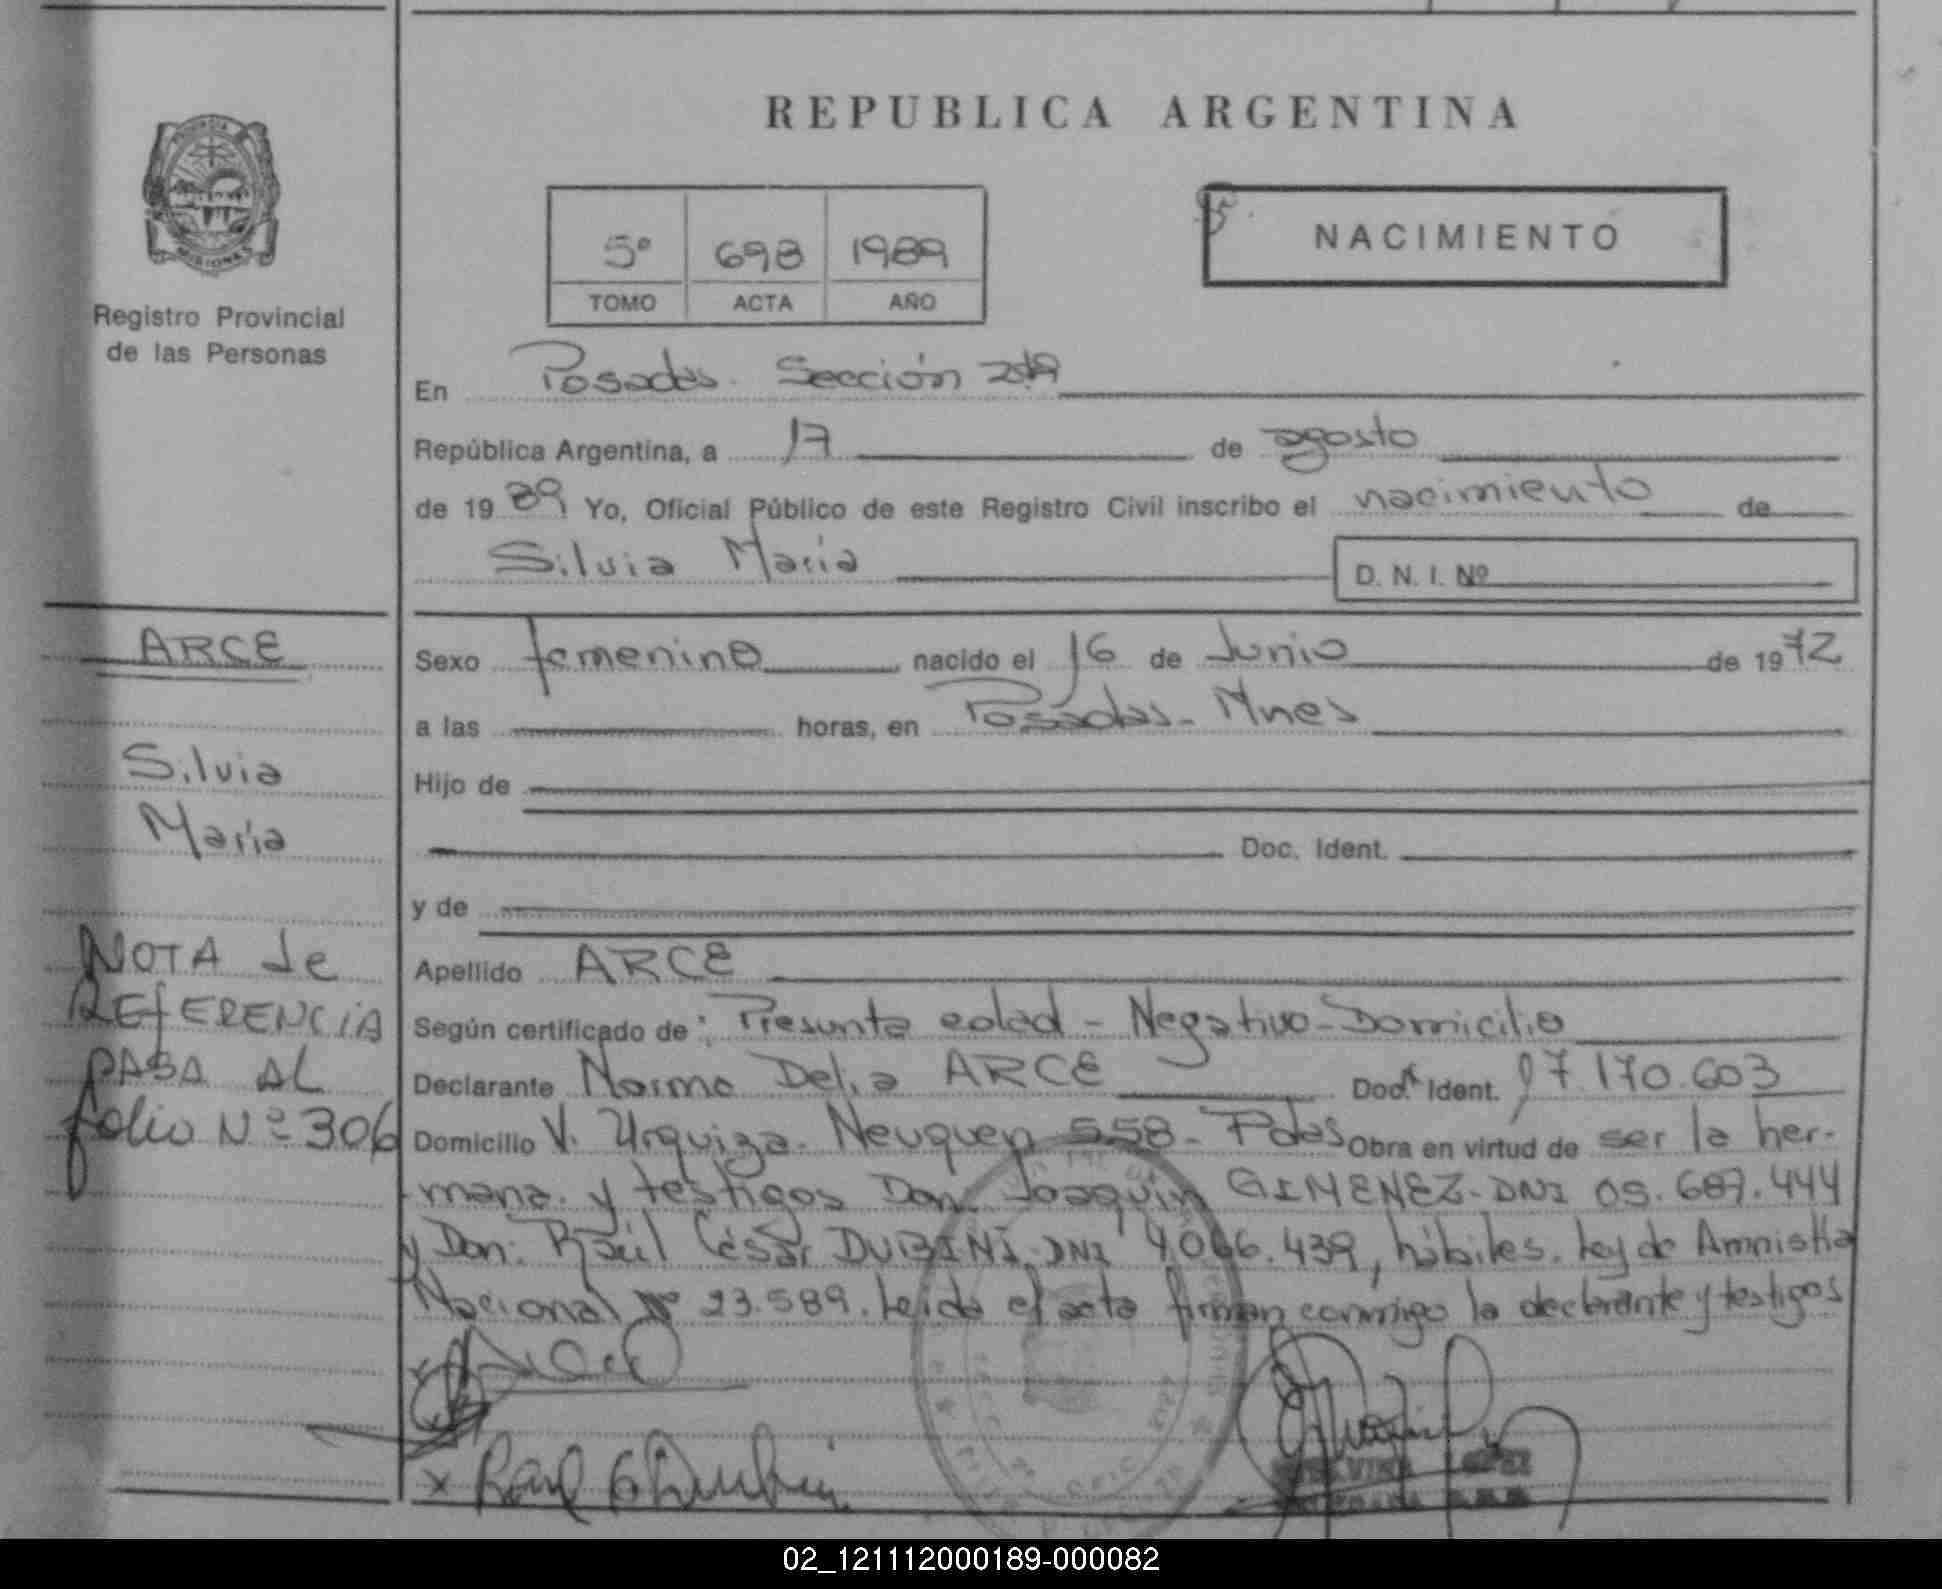 REPUBLICA ARGENTINA
MISIONES
Registro Provincial
de las Personas
5º 698 1989
TOMO ACTA AÑO
NACIMIENTO
En Posadas. Sección 2da
República Argentina, a 17 de agosto
de 1989 Yo, Oficial Público de este Registro Civil inscribo el nacimiento de
Silvia María
D. N. I. Nº
ARCE
Silvia
María
NOTA de
REFERENCIA
PASA AL
folio Nº 306
Sexo femenino nacido el 16 de Junio de 1972
a las horas, en Posadas - Mnes
Hijo de
Doc. Ident.
y de
Apellido ARCE
Según certificado de: Presunta edad - Negativo - Domicilio
Declarante Norma Delia ARCE Doc. Ident. 17.170.603
Domicilio V. Urquiza - Neuquen 558 - Pdas Obra en virtud de ser la her-
mana. y testigos Don: Joaquín GIMENEZ - DNI 05.687.444
y Don: Raúl César DUBINI, DNI 4.066.439, hábiles. Ley de Amnistía
Nacional Nº 23.589. Leída el acta firman conmigo la declarante y testigos
02_121112000189-000082